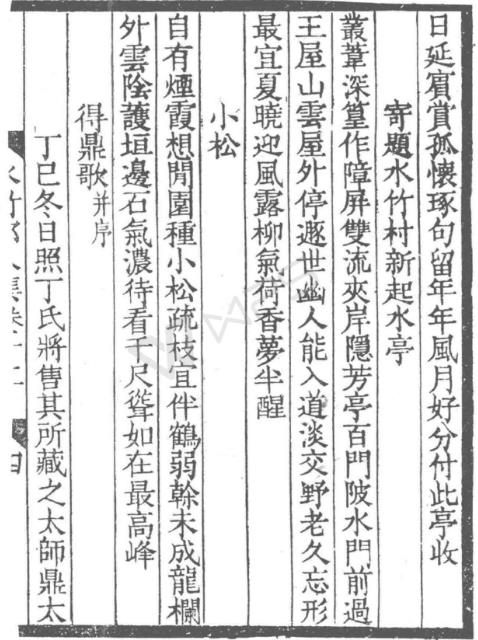 日延賓賞孤懷琢句留年年風月好分付此亭收
寄題水竹村新起水亭
叢葦深篁作障屏雙流夾岸隱芳亭百門陂水門前過
王屋山雲屋外停遯世幽人能入道淡交野老久忘形
最宜夏曉迎風露柳氣荷香夢半醒
小松
自有煙霞想閒園種小松疏枝宜伴鶴弱榦未成龍欄
外雲陰護垣邊石氣濃待看千尺聳如在最高峰
得鼎歌并序
丁巳冬日照丁氏將售其所藏之太師鼎太
水竹邨人集卷十二
四